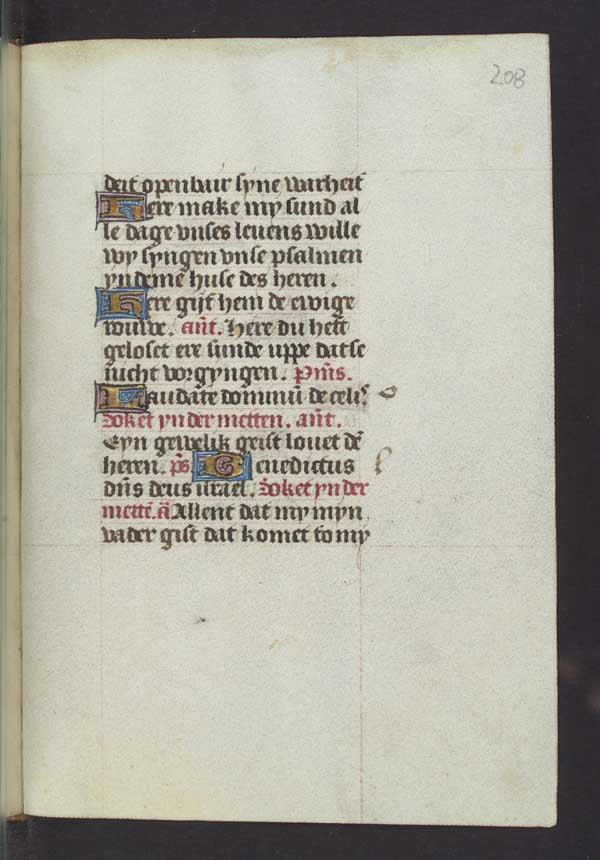 208
deit openbair syne warheit
Here make my sund al
le dage vnses leuens wille
wy syngen vnse psalmen
yn deme huse des heren.
Here gijf hem de ewige
rouwe. an̄t. Here du hest
geloset ere sunde uppe dat se
nicht vorgyngen. Psalms.
Laudate dominū de celis
Soket yn der metten. an̄t.
Eyn gewelik geist louet dē
heren. ps. Benedictus
dn̄s deus israel. Soket yn der
mettē. ā Allent dat my myn
vader gift dat komet to my